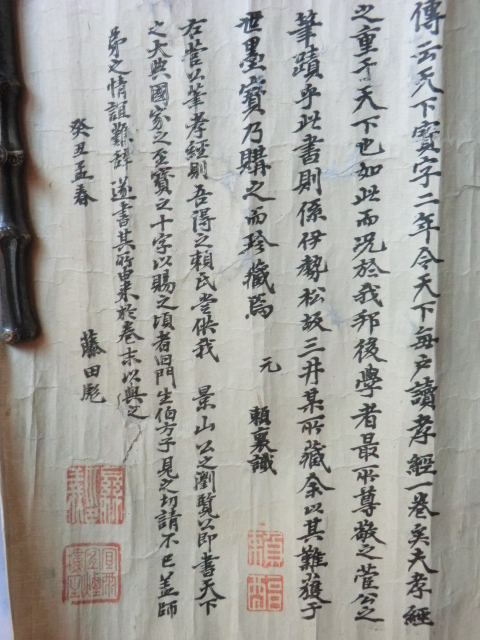 傳云天下寶字二年令天下每戶讀孝經一卷矣夫孝經
之重于天下也如此而況於我邦後學者最所尊敬之菅公之
筆蹟乎此書則係伊勢松坂三井某所藏余以其難獲于
世墨寶乃購之而珍藏焉
元 賴襄識
右菅公筆孝經則吾得之賴氏嘗供我 景山公之瀏覽公即書天下
之大典國家之至寶之十字以賜之頃者旧門生伯方子見之切請不已蓋師
弟之情誼難辭遂書其所由來於卷末以與之
癸丑孟春
藤田彪
賴襄